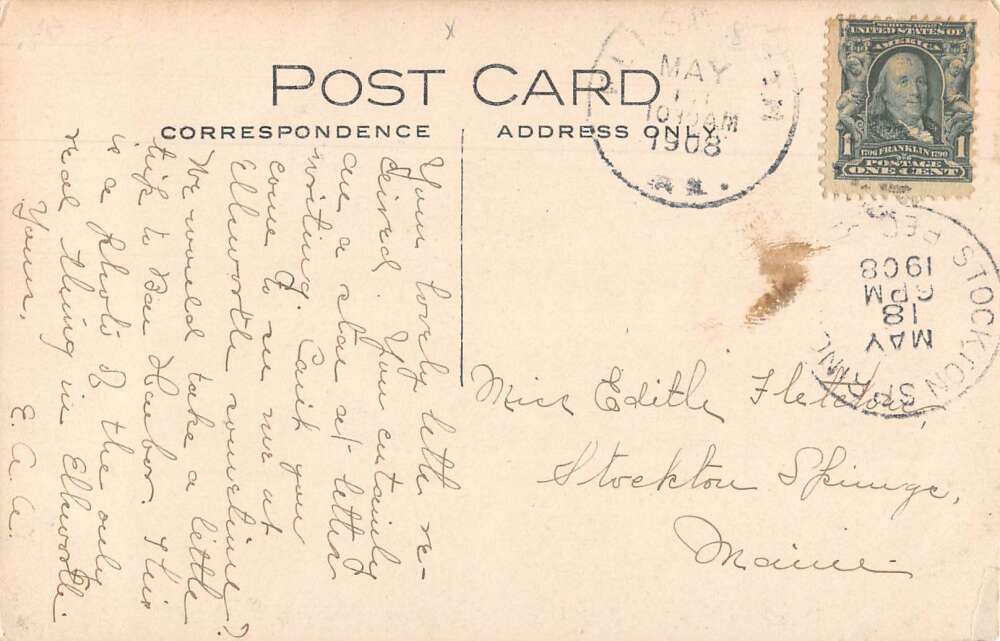 POST CARD
CORRESPONDENCE
ADDRESS ONLY
SERIES 1902
UNITED STATES OF
AMERICA
1790 FRANKLIN 1790
POSTAGE
1 ONE CENT 1
MAY
1030AM
1908
STOCKTON SPR
REC'D
MAY
18
6PM
1908
Your lovely letter re-
ceived. You certainly
are a star at letter
writing. Can't you
come to see me at
Ellsworth sometime?
We would take a little
trip to Bar Harbor. This
is a photo of the only
real thing in Ellsworth.
Yours,
E. A. A.
Miss Edith Fletcher,
Stockton Springs,
Maine.